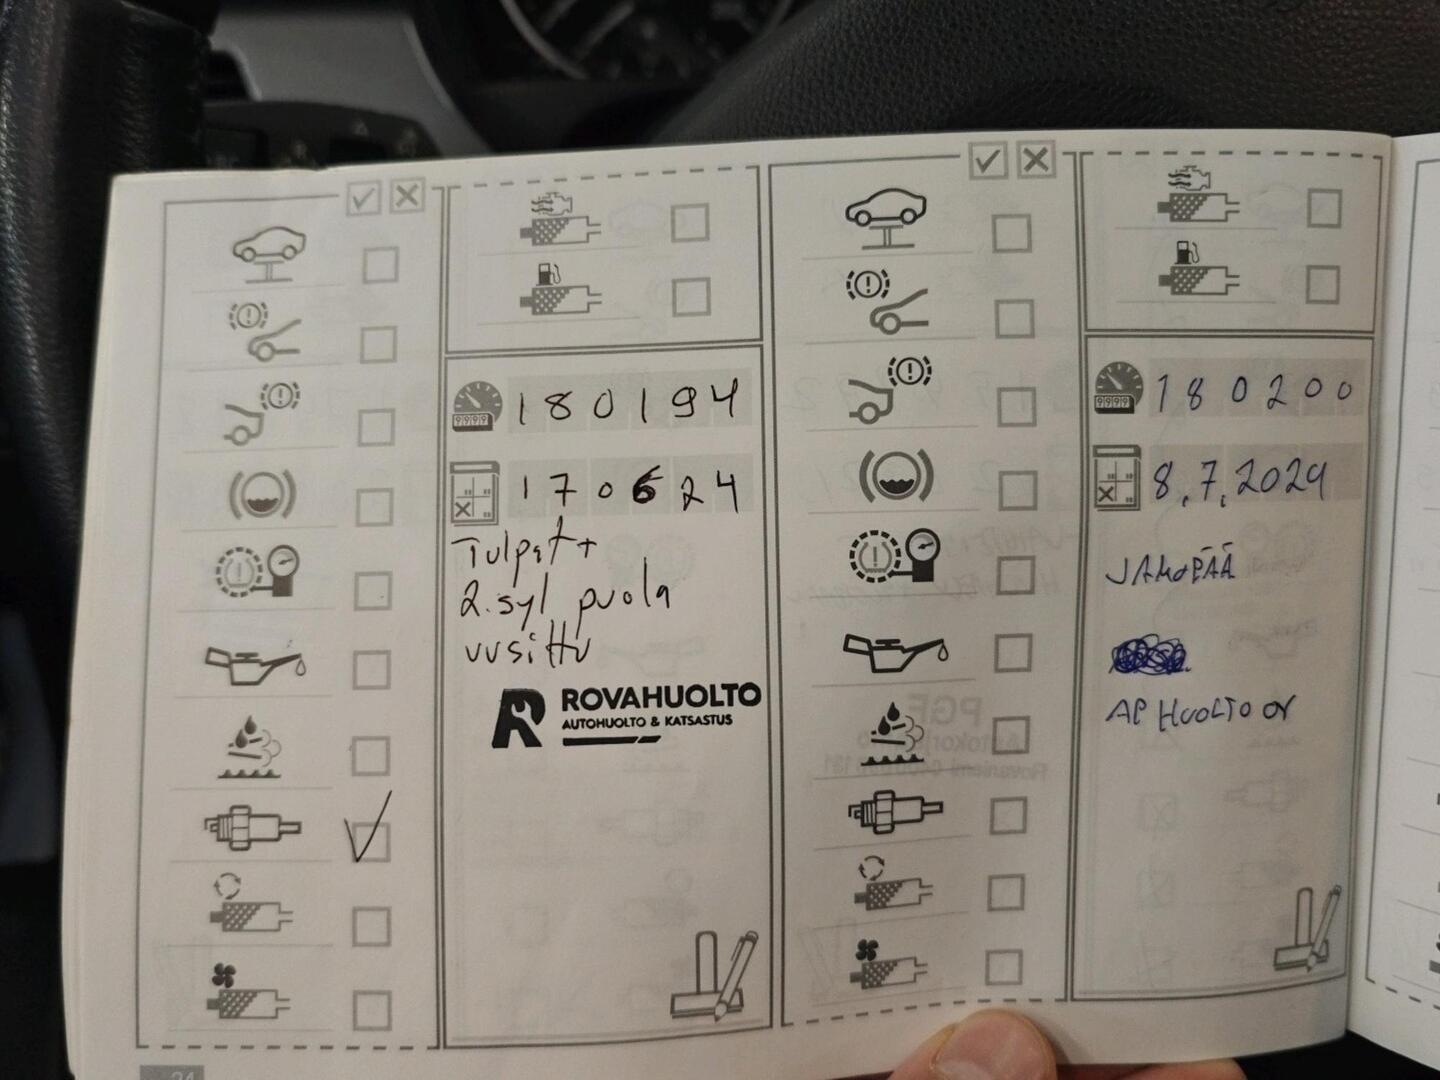 180194
170624
Tulpat +
2.syl puola
uusittu
ROVAHUOLTO
AUTOHUOLTO & KATSASTUS
24
180200
8.7.2024
JAKOPÄÄ
AP HUOLTO OY
PGF